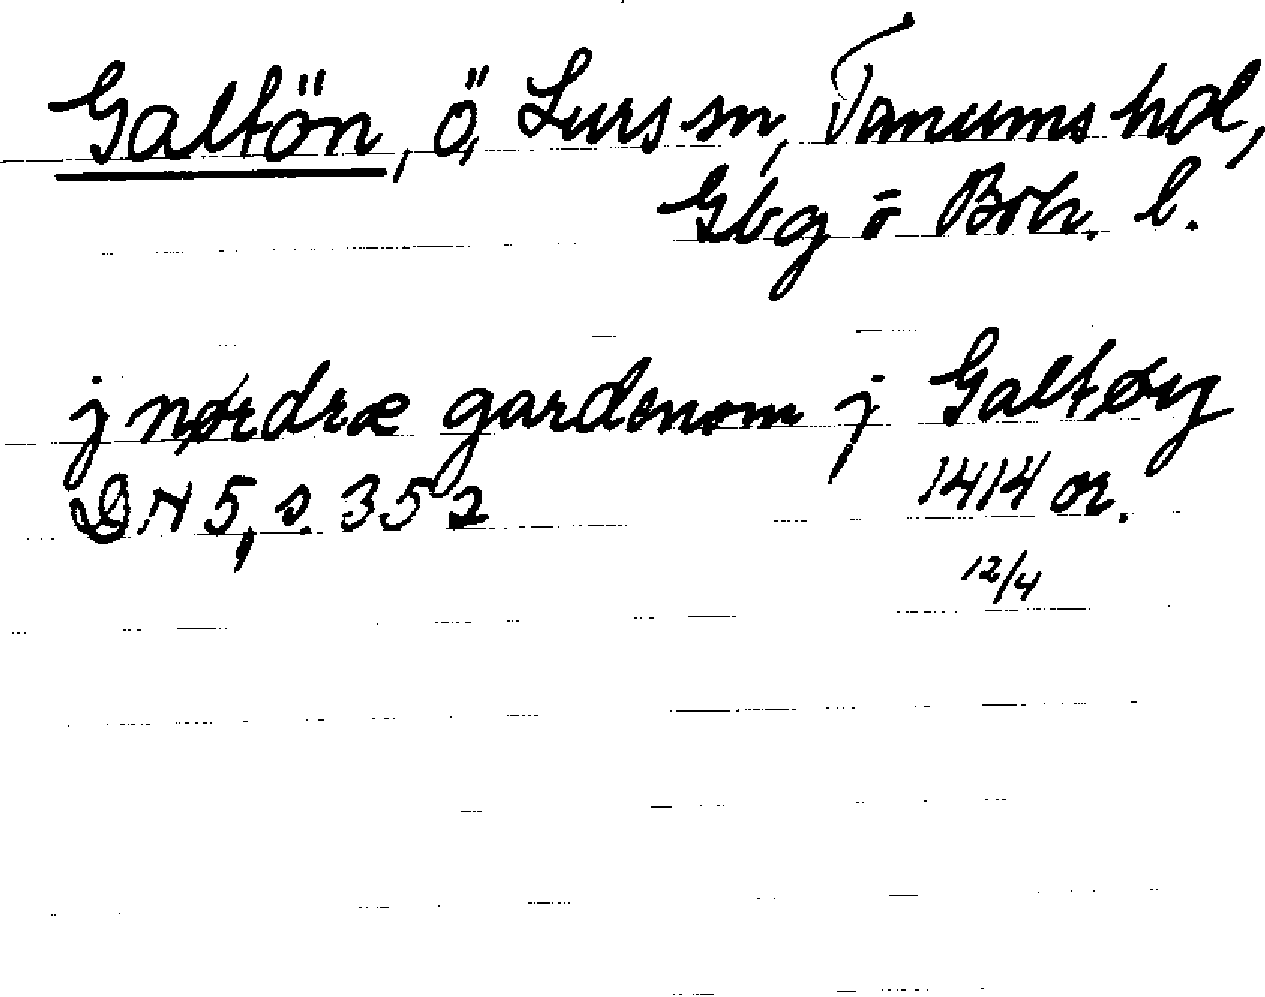 Galtön, ö, Lurs sn, Tanums hd,
Gbg o Boh. l.
j nørdræ gardenom j Galtøy
DN 5, s. 352 1414 or.
12/4